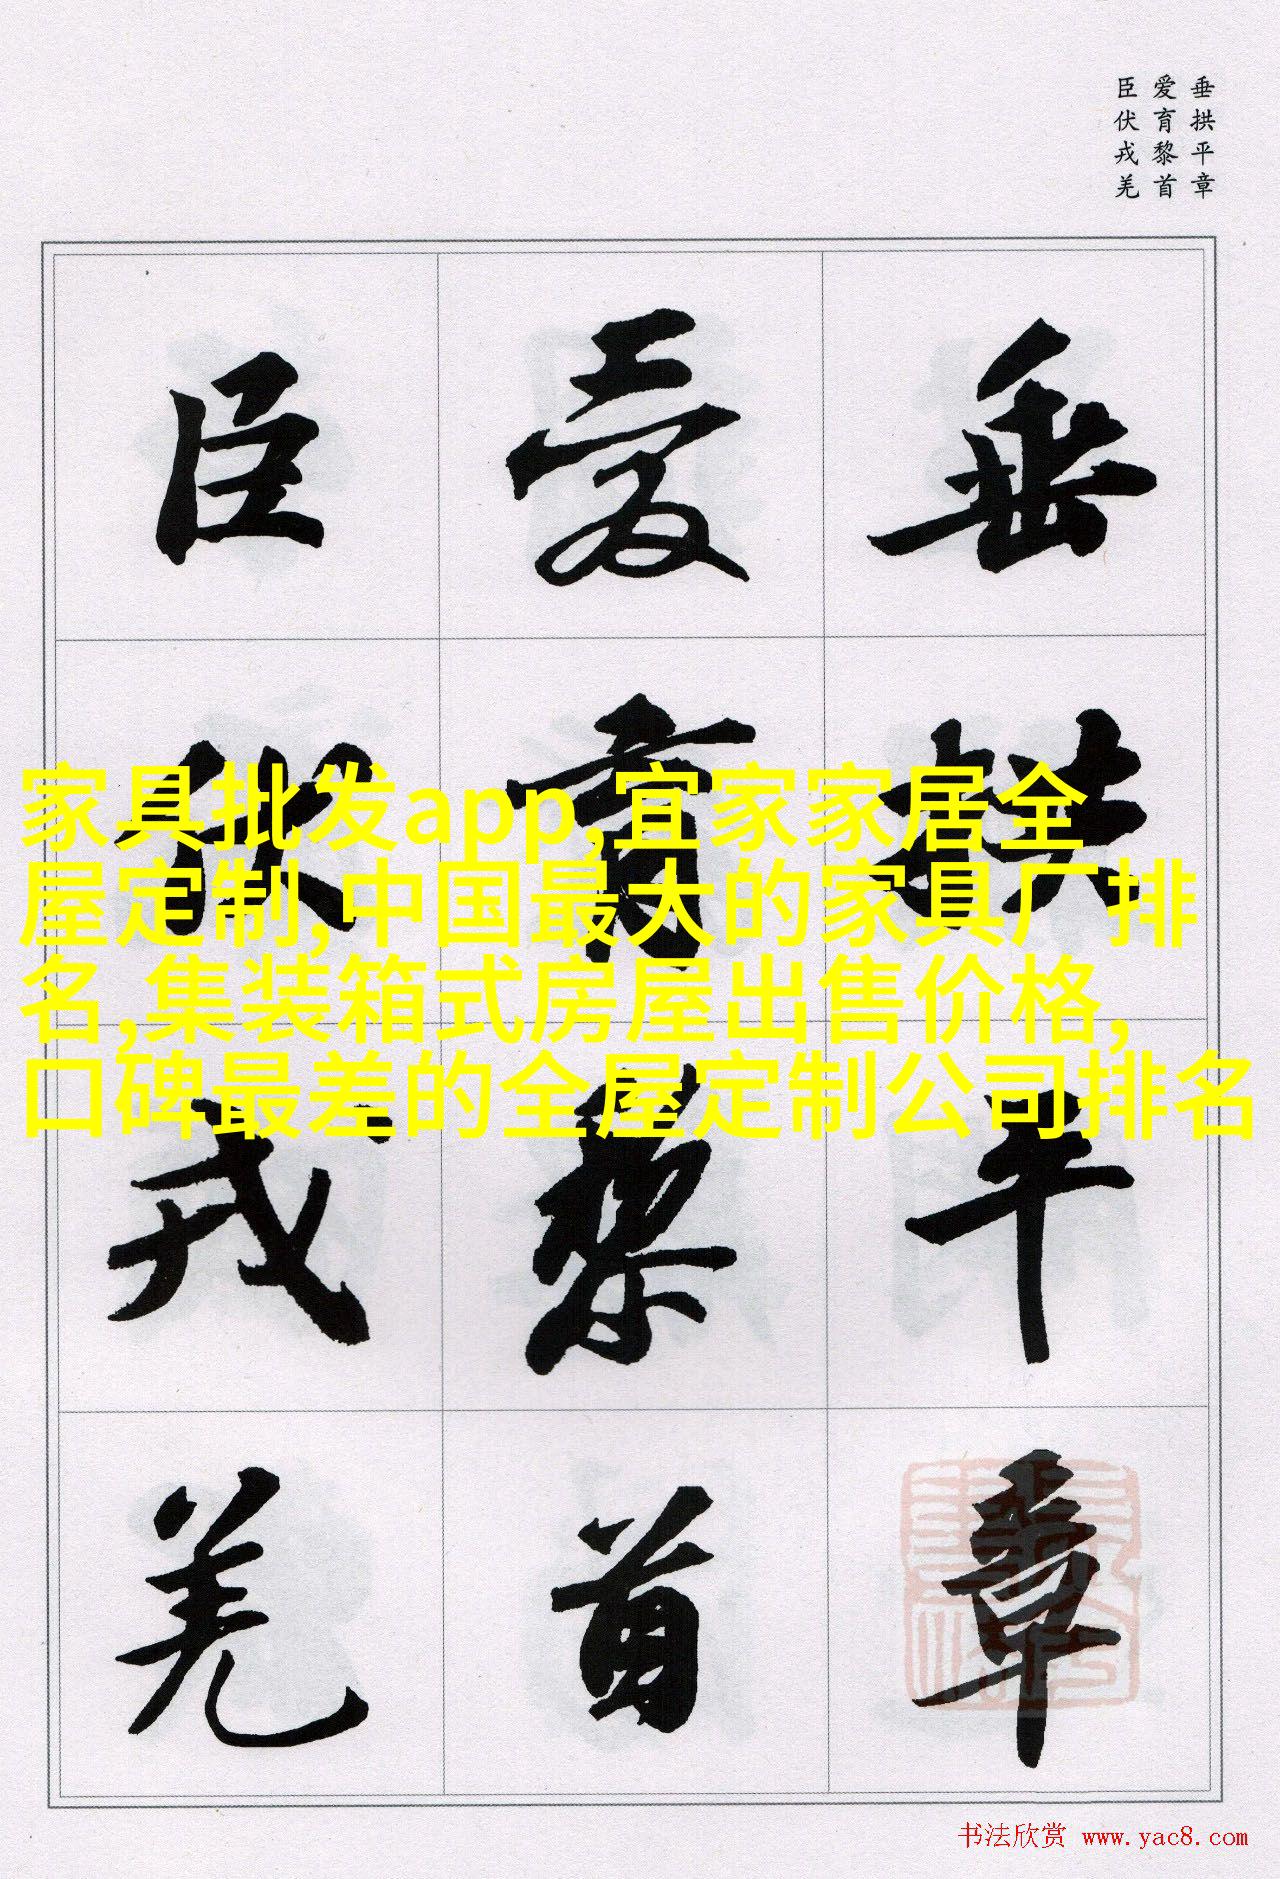 垂拱平章
爱育黎首
臣伏戎羌
垂拱平章
爱育黎首
臣伏戎羌
家具批发app,宜家家居全
屋定制,中国最大的家具厂排
名,集装箱式房屋出售价格,
口碑最差的全屋定制公司排名
书法欣赏 www.yac8.com